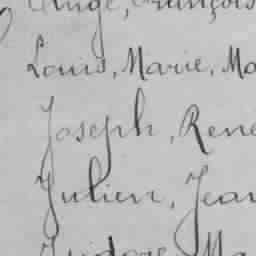 Ange, François
Louis, Marie, Ma
Joseph, René
Julien, Jean
Isidore, Ma